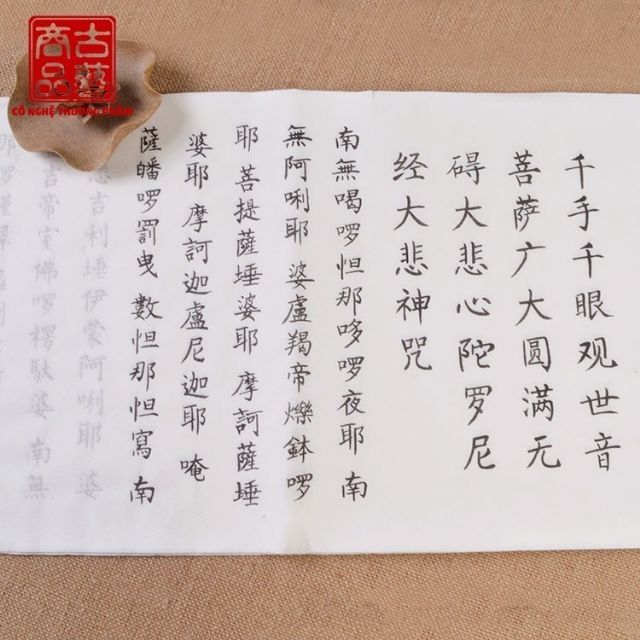 千手千眼观世音
菩萨广大圆满无
碍大悲心陀罗尼
经大悲神咒
南無喝啰怛那哆啰夜耶 南
無阿唎耶 婆盧羯帝爍鉢啰
耶 菩提薩埵婆耶 摩訶薩埵
婆耶 摩訶迦盧尼迦耶 唵
薩皤啰罰曳 數怛那怛寫 南
悉吉利埵伊蒙阿唎耶 婆
吉帝室佛啰楞馱婆 南無
那啰謹墀
古藝
商品
CỔ NGHỆ THƯƠNG PHẨM